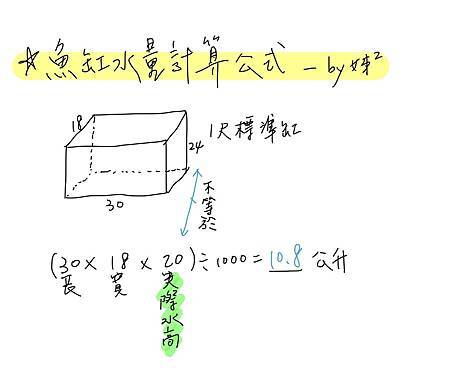 ☆魚缸水量計算公式 - by 妹²
18
24
1尺標準缸
30
不等於
(30 × 18 × 20) ÷ 1000 = 10.8 公升
長 寬 實際水高